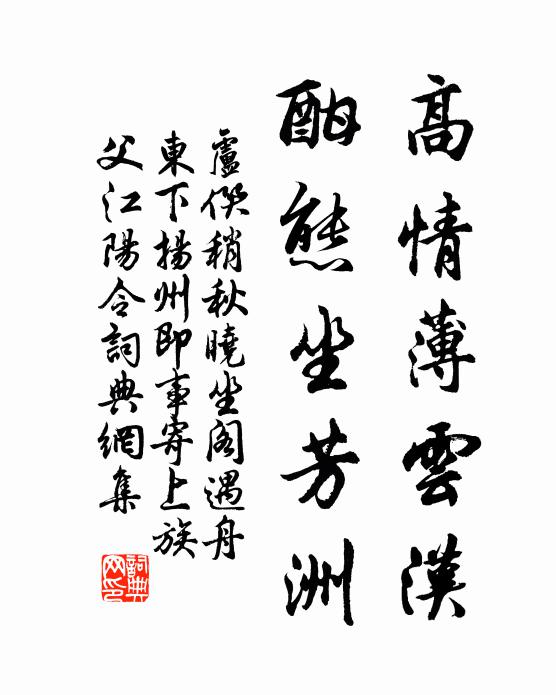 高情薄雲漢
酣態坐芳洲
盧僎稍秋曉坐閣遇舟
東下揚州即事寄上族
父江陽令詞典網集
詞典
网印